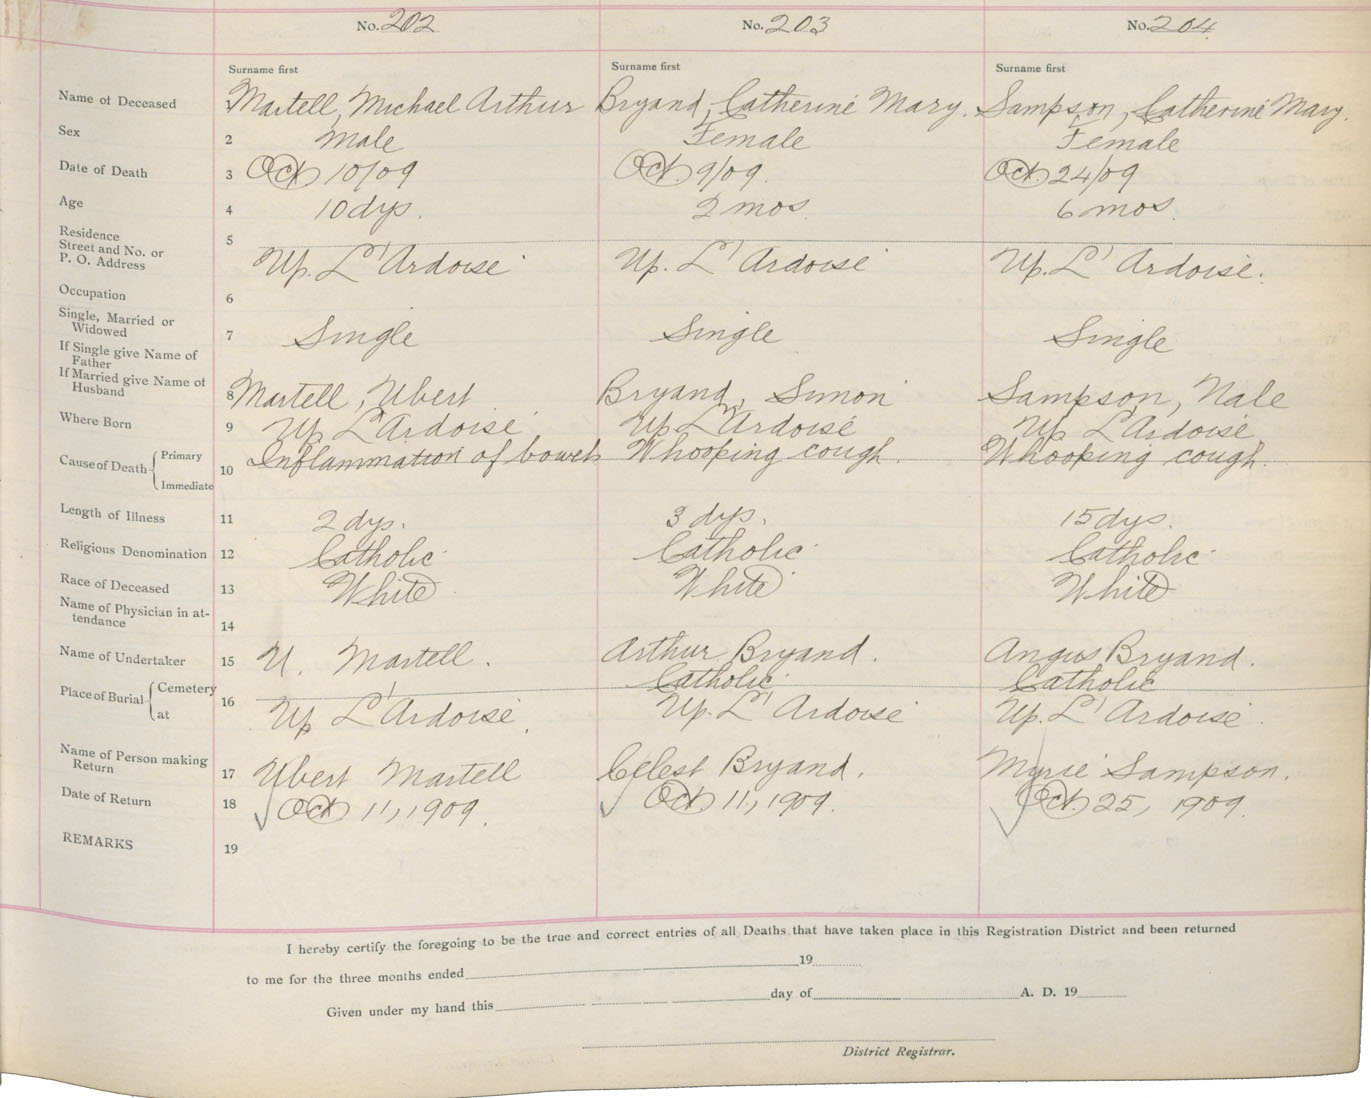 No. 202 No. 203 No. 204
Surname first Surname first Surname first
Name of Deceased 1 Martell, Michael Arthur Bryand, Catherine Mary. Sampson, Catherine Mary.
Sex 2 Male Female Female
Date of Death 3 Oct 10/09 Oct 9/09. Oct 24/09
Age 4 10 dys. 2 mos. 6 mos.
Residence 5
Street and No. or
P. O. Address Up. L'Ardoise Up. L'Ardoise Up. L'Ardoise.
Occupation 6
Single, Married or
Widowed 7 Single Single Single
If Single give Name of
Father
If Married give Name of
Husband 8 Martell, Ubert Bryand, Simon Sampson, Nale
Where Born 9 Up L'Ardoise Up L'Ardoise Up L'Ardoise
Cause of Death Primary 10 Inflammation of bowels Whooping cough. Whooping cough.
Immediate
Length of Illness 11 2 dys. 3 dys. 15 dys.
Religious Denomination 12 Catholic Catholic Catholic
Race of Deceased 13 White White White
Name of Physician in at-
tendance 14
Name of Undertaker 15 U. Martell. Arthur Bryand. Angus Bryand.
Place of Burial Cemetery 16 Catholic Catholic
at Up L'Ardoise. Up. L'Ardoise Up. L'Ardoise.
Name of Person making
Return 17 Ubert Martell Celest Bryand. Myrie Sampson.
Date of Return 18 Oct 11, 1909. Oct. 11, 1909. Oct. 25, 1909.
REMARKS 19
I hereby certify the foregoing to be the true and correct entries of all Deaths that have taken place in this Registration District and been returned
to me for the three months ended 19
Given under my hand this day of A. D. 19
District Registrar.